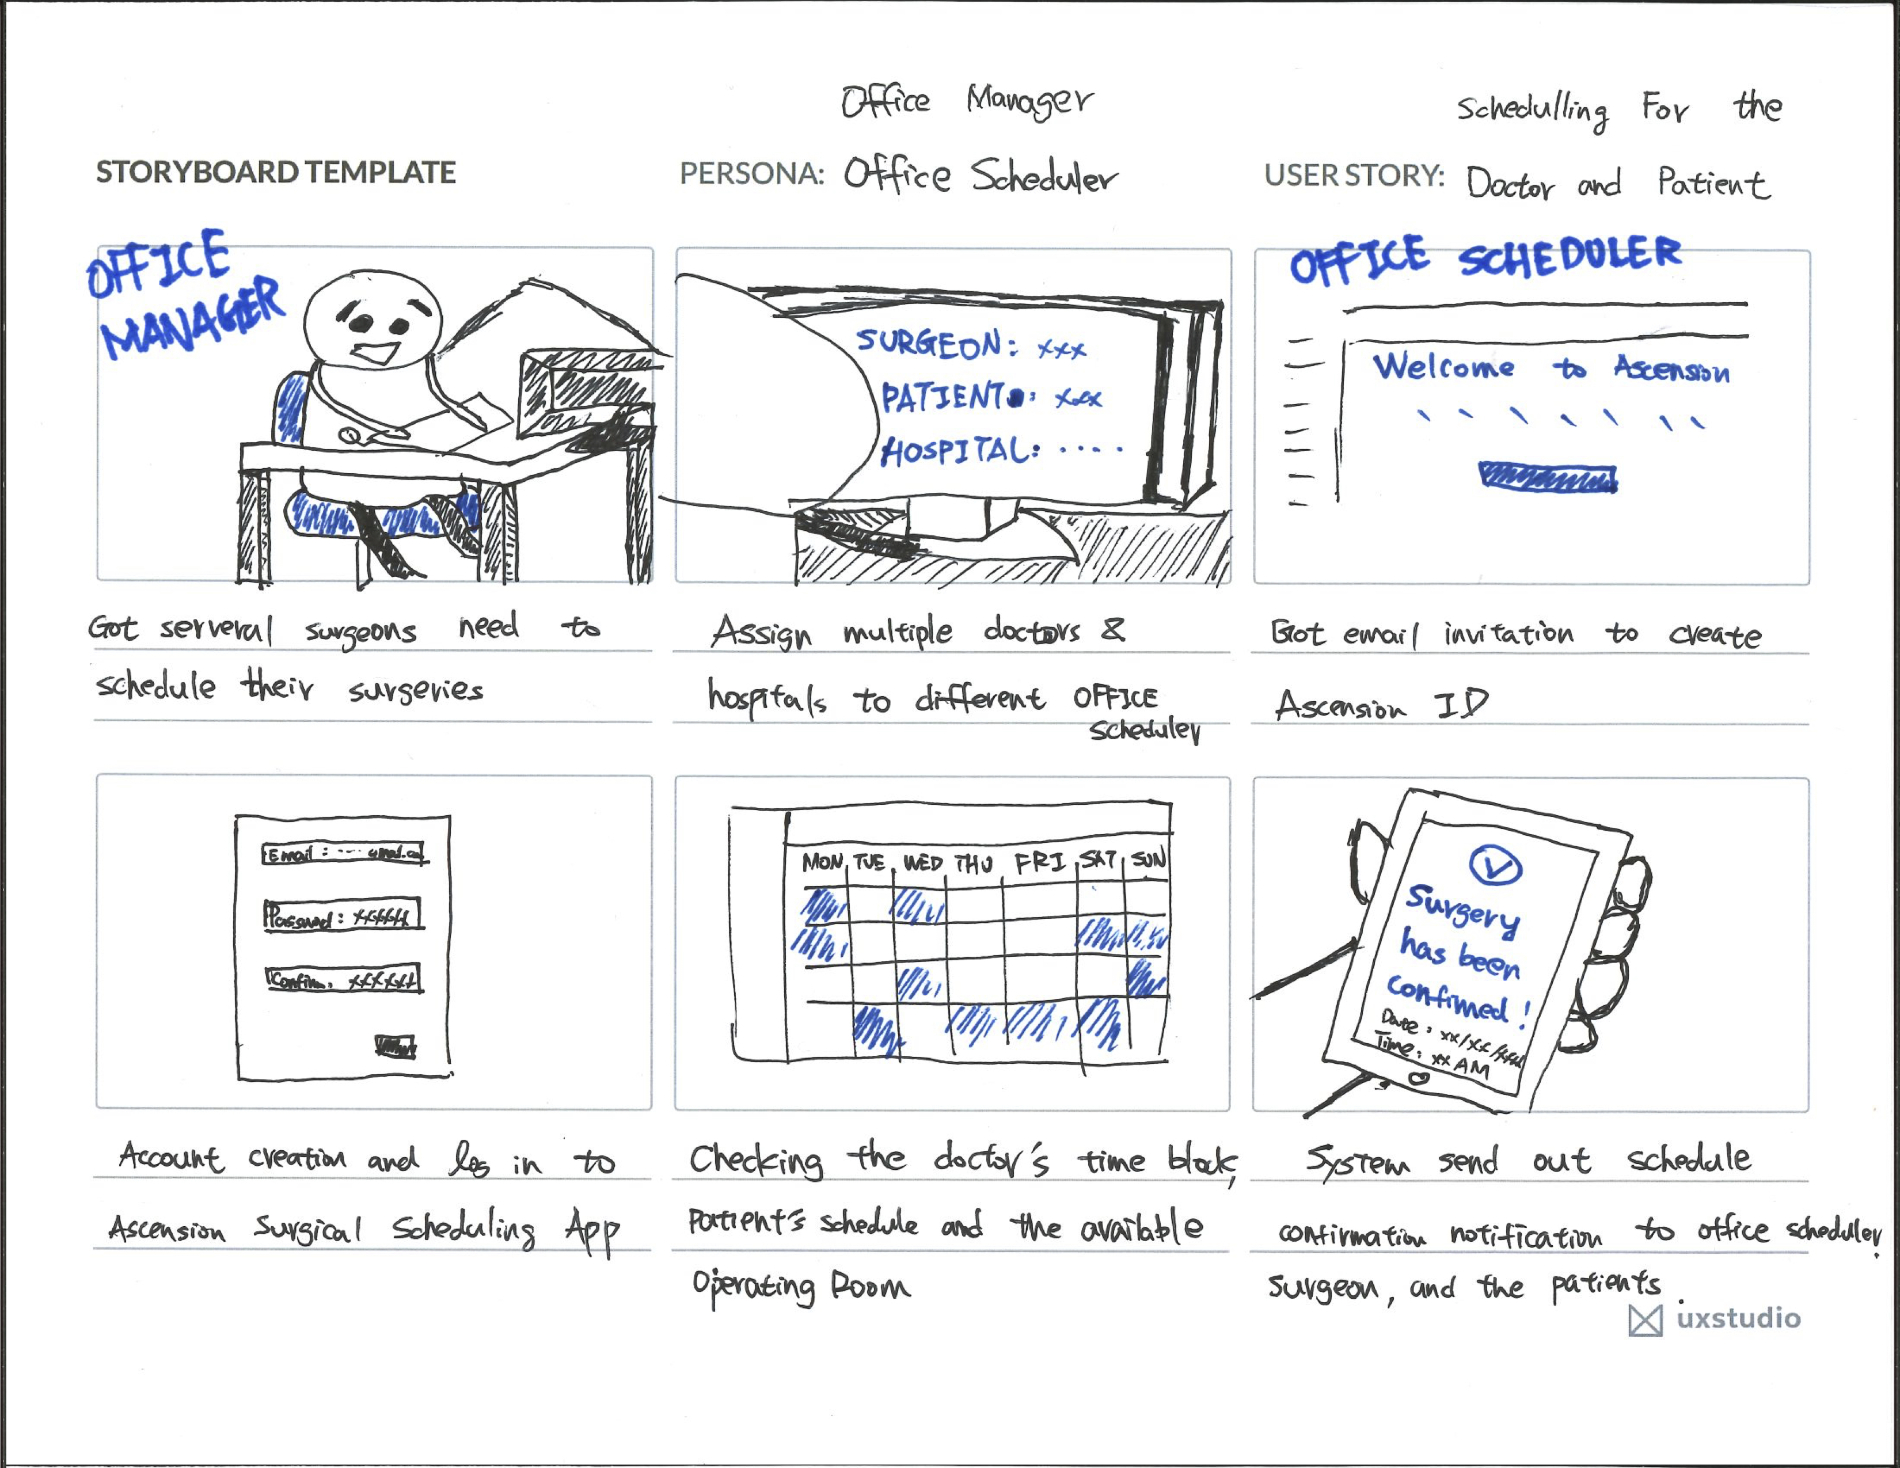 Office Manager
Schedulling For the
STORYBOARD TEMPLATE
PERSONA: Office Scheduler
USER STORY: Doctor and Patient
OFFICE
MANAGER
SURGEON: xxx
PATIENT: xxx
HOSPITAL: ....
OFFICE SCHEDULER
Welcome to Ascension
Got serveral surgeons need to
schedule their surgeries
Assign multiple doctors &
hospitals to different OFFICE
Scheduler
Got email invitation to create
Ascension ID
Email : ---
Password : xxxxxx
Confirm. xxxxxx
MON TUE WED THU FRI SAT SUN
Surgery
has been
confimed!
Date : xx/xx/xxxx
Time : xx AM
Account creation and log in to
Ascension Surgical Scheduling App
Checking the doctor's time block,
Patient's schedule and the available
Operating Room
System send out schedule
confirmation notification to office scheduler,
surgeon, and the patients.
uxstudio